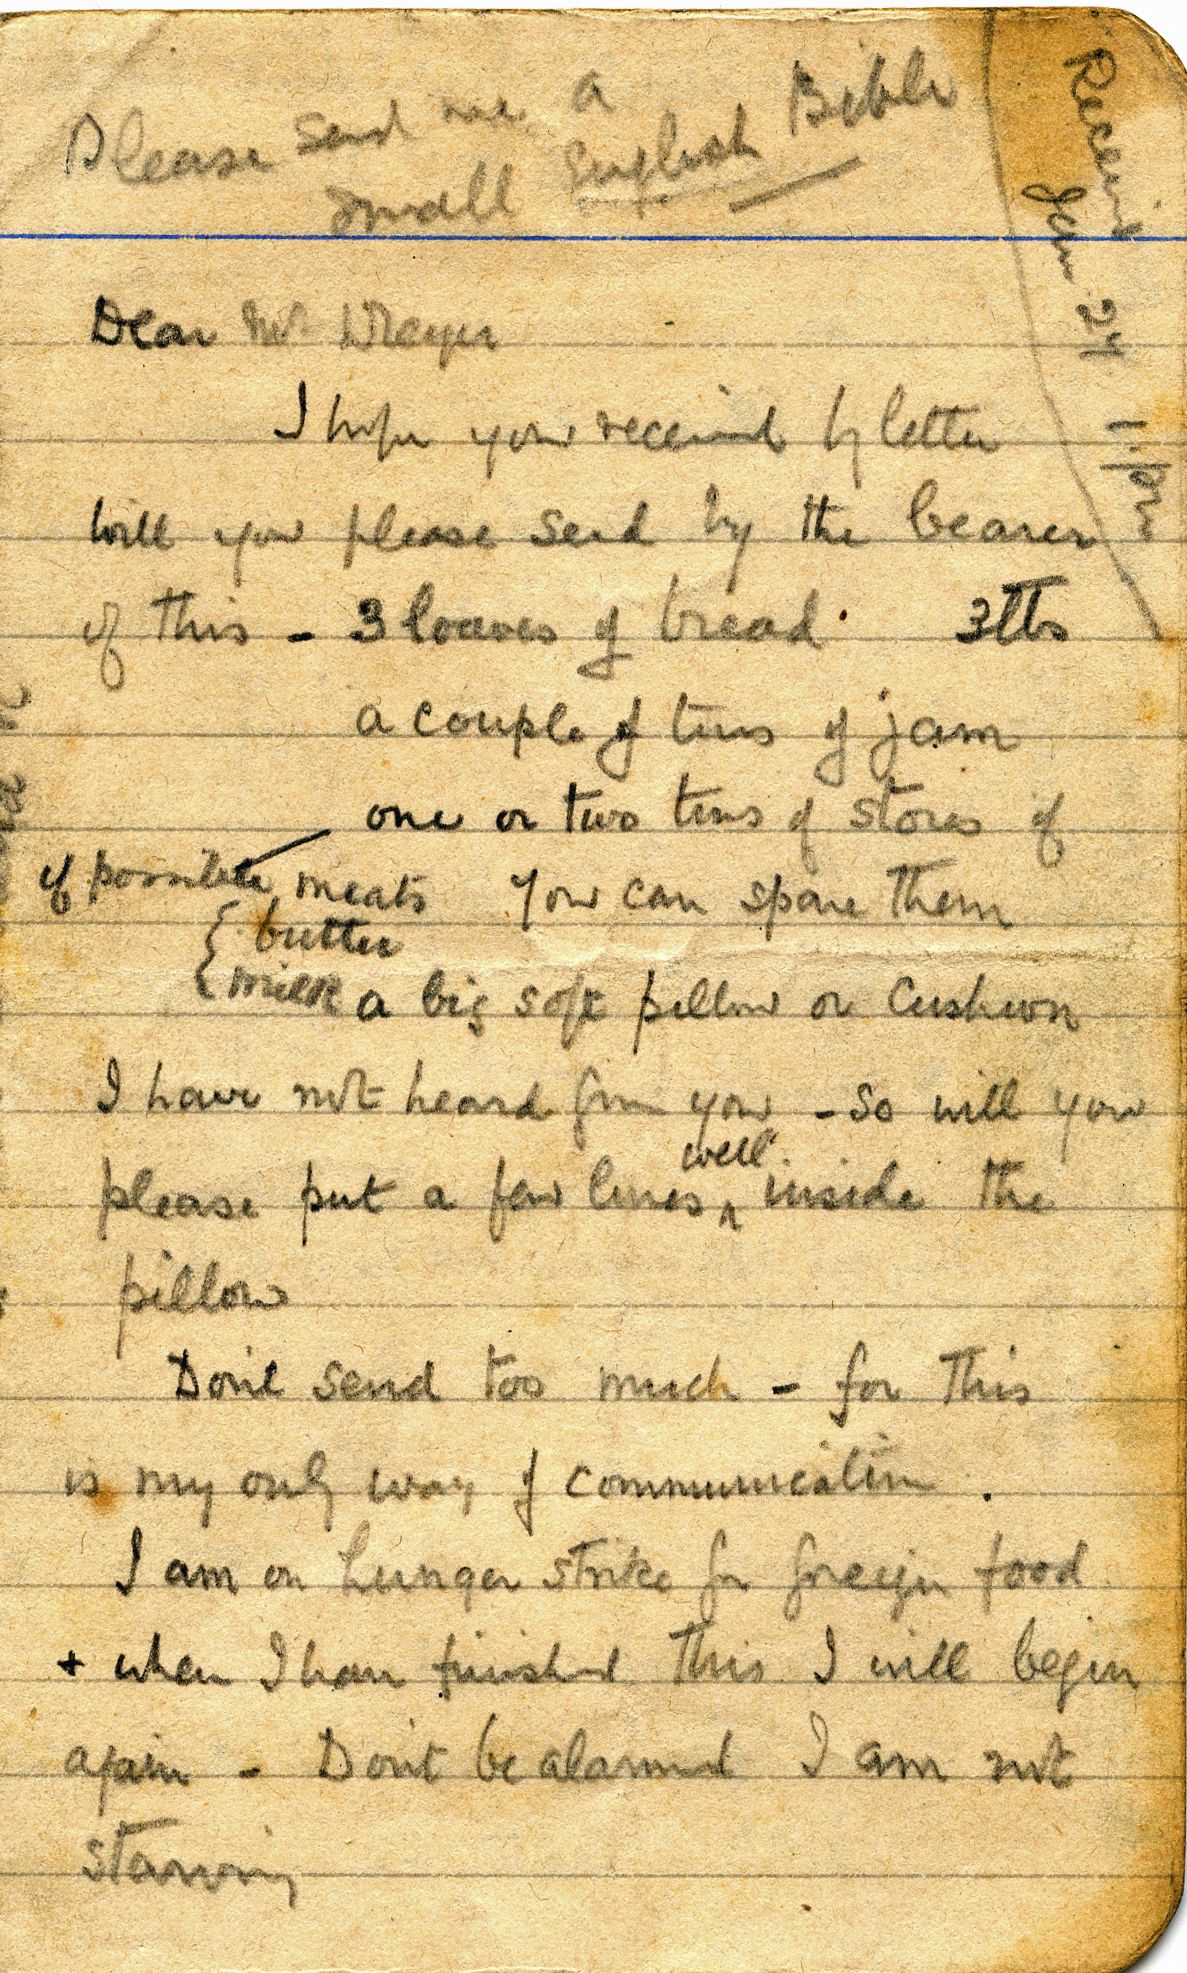 Please send me a
small English Bible
Received
Jan 24
1. pm
Dear Mr Dreyer
I hope you received by letter
will you please send by the bearer
of this - 3 loaves of bread. 3tts
a couple of tins of jam
one or two tins of stores if
if possible meats you can spare them
{ butter
{ milk a big soft pillow or cushion
I have not heard from you - so will you
well
please put a few lines ^ inside the
pillow
Don't send too much - for this
is my only way of communication.
I am on hunger strike for foreign food
+ when I have finished this I will begin
again - Don't be alarmed I am not
starving